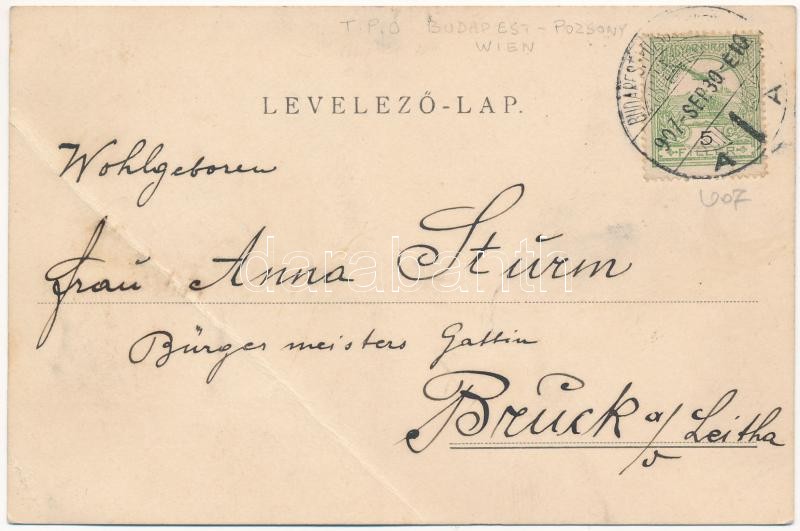 T.P.O BUDAPEST - POZSONY
WIEN
LEVELEZŐ-LAP.
BUDAPEST
907-SEP.30-E10
A
5
FILLÉR
A 1
607
Wohlgeboren
Frau Anna Sturm
Bürgermeisters Gattin
Bruck a/
d Leitha
darabanth